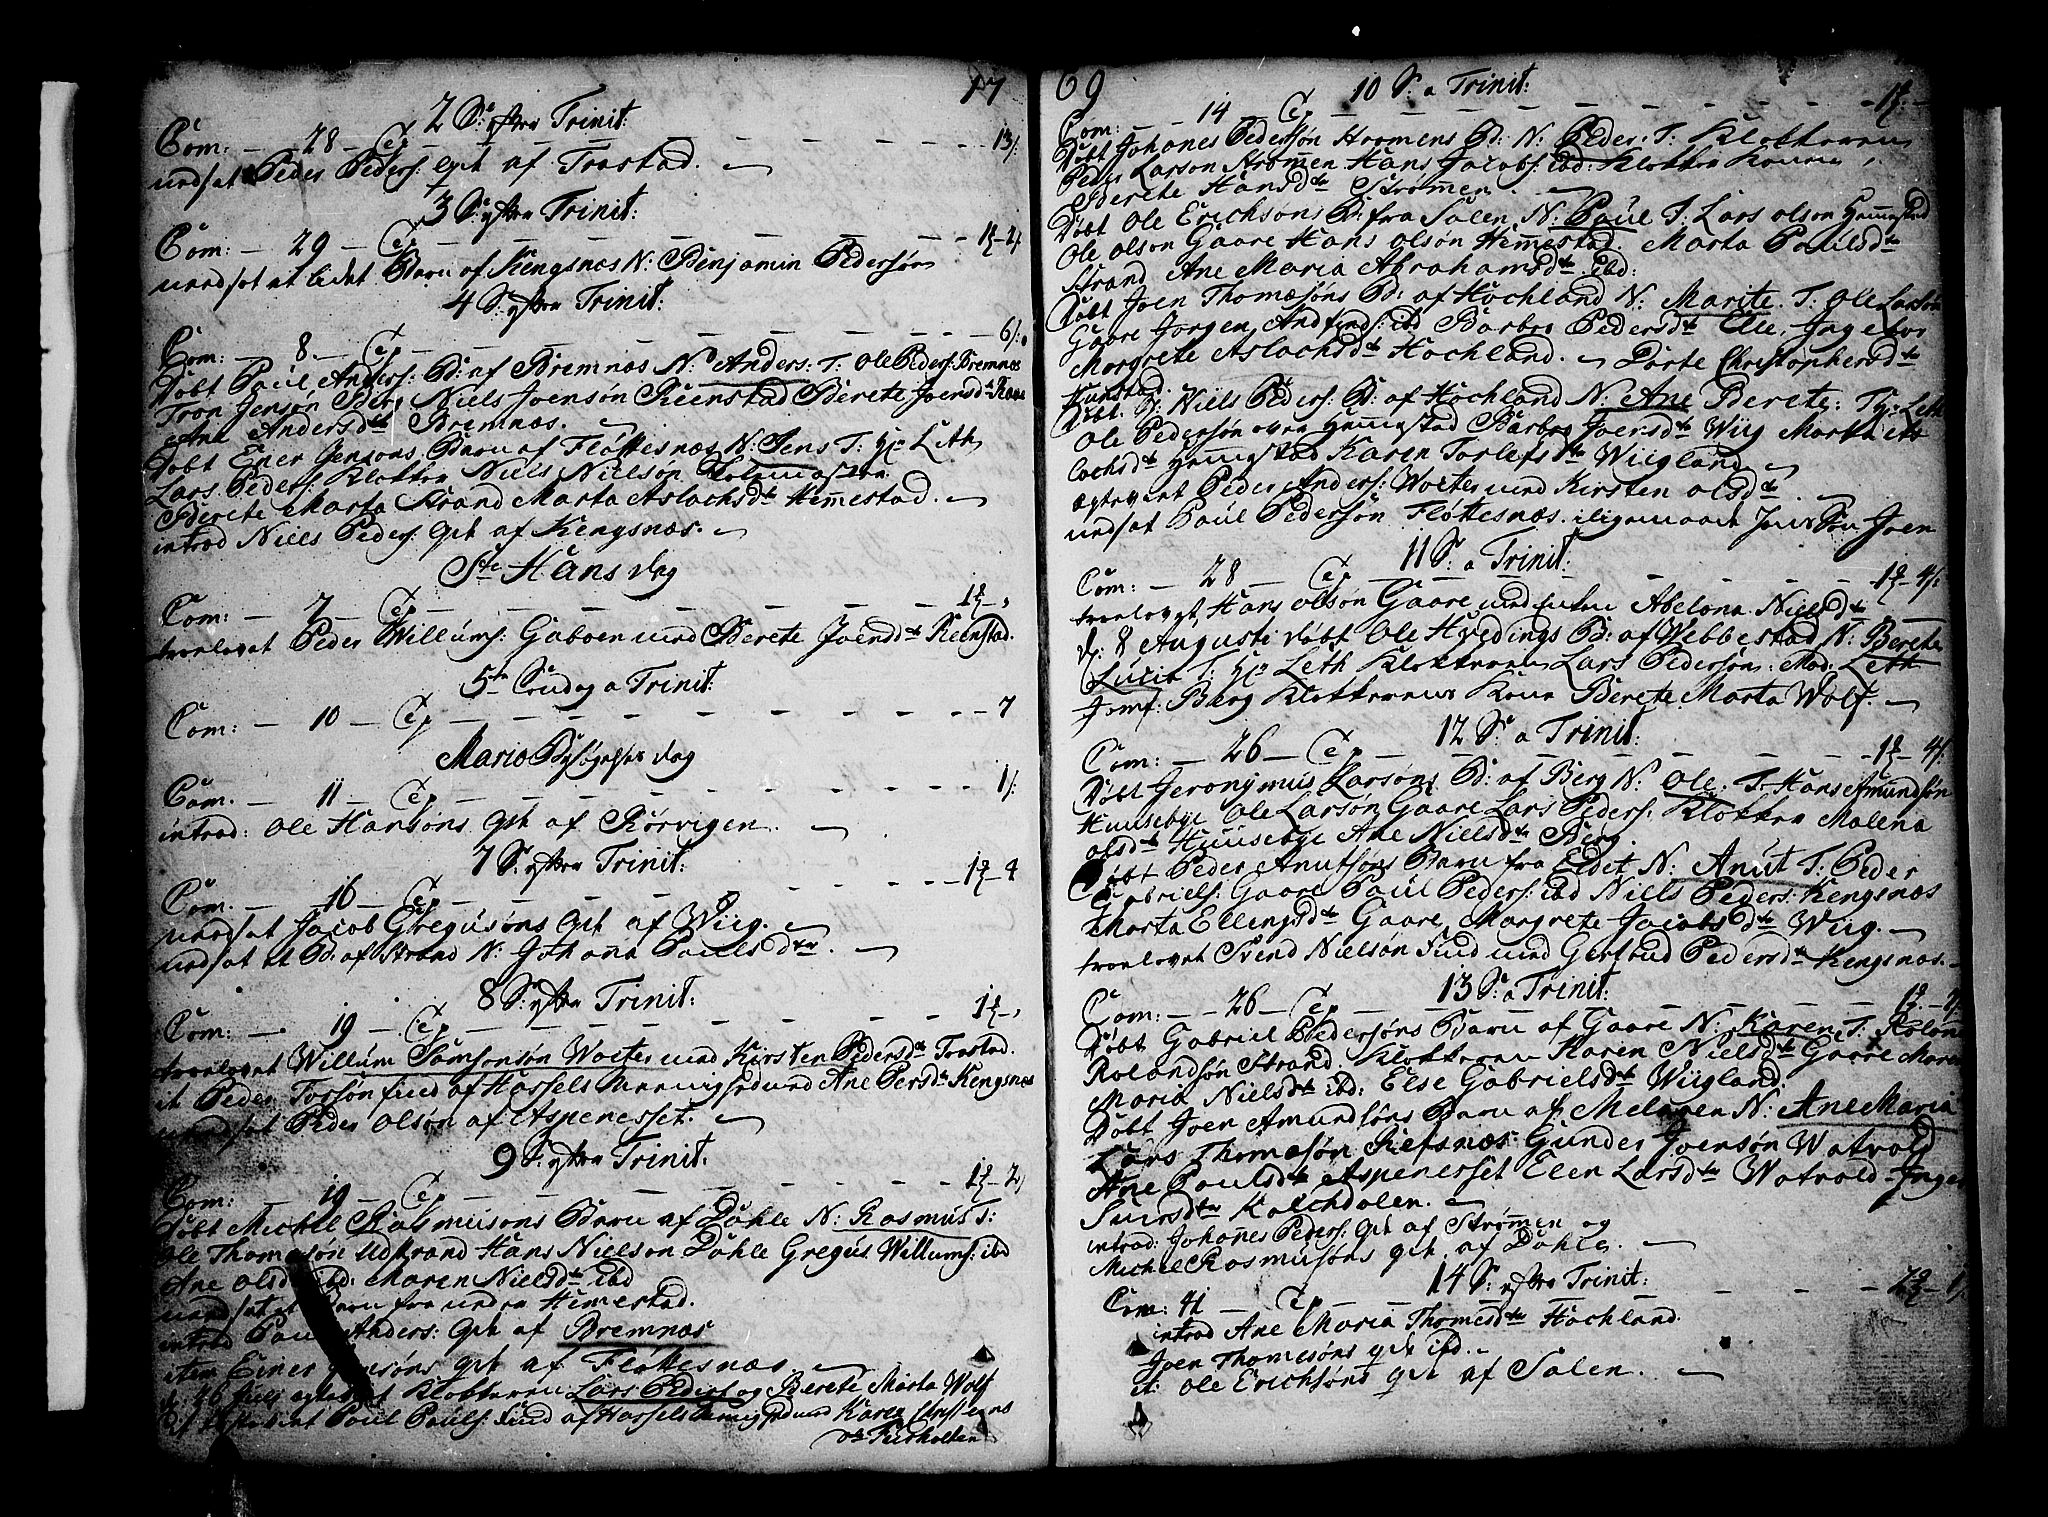 17
2 S: efter Trinit:
Com: — 28 — Cp — 13/:
nedsat Peder Peders: qvt af Trastad.
3 S: efter Trinit:
Com: — 29 — Cp
nedsat et lidet Barn af Kengsnæs N: Benjamin Pedersøn
4 S: efter Trinit:
Com: — 8 — Cp — 6/:
Døbt Paul Anders: B: af Bremnæs N: Anders: T: Ole Peders: Bremnæs
Tron Jensøn Berg Niels Joensøn Reenstad Berete Joensdtr
Ane Andersdtr Bremnæs.
Døbt Ener Jensøns Barn af Fløttesnæs N: Jens T: Hr Leth
Lars Peders: Klokker Niels Nielsøn
Berete Marta Strand Marta Aslachsdtr Hemmestad.
introd Niels Peders: qvt af Kengsnæs.
Ste Hans dag
Com: — 7 — Cp
troelovet Peder Willums: Gaboen med Berete Joensdtr Reenstad.
5te Søndag a Trinit:
Com: — 10 — Cp — 7
Mariæ Besøgelses dag
Com. — 11 — Cp — 1/:
introd: Ole Hansøns qvt af Rørvigen
7 S: efter Trinit:
Com. — 16 — Cp
nedsat Jacob Gregusøns qvt af Wiig.
nedsat et B: af Strand N: Johana Paulsdtr.
8 S: efter Trinit:
Com: — 19 — Cp
troelovet Willum Samsonsøn Woeter med Kirsten Pedersdtr Trastad.
it Peder Torsøn find af Hassels menighed med Ane Persdtr Kengsnæs
nedsat Peder Olsøn af Aspenesset.
9 S: efter Trinit:
Com: — 19 — Cp
Døbt Michel Rasmusøns Barn af Døhle N: Rasmus T:
Ole Thomesøn Udstrand Hans Nielsøn Døhle Gregus Willums: ibd
Ane Olsdtr ibd: Maren Nielsdtr ibd
nedsat et Barn fra nedre Hemestad.
introd Paul Anders: qvt af Bremnæs
item Einer Jensøns qvt af Fløttesnæs
d: 26 Julii egteviet Klokkeren Lars Peders og Berete Marta Wolf
Paul Pauls: find af Hassels menighed med Karen Christens
dtr
69
10 S: a Trinit:
Com: — 14 — Cp
Døbt Johanes Pedersøn Strømens B: N: Peder: T: Klokkeren
Peder Larsøn Strømen Hans Jacobs: ibd: Klokker Konen
Berete Hansdtr Strømen.
Døbt Ole Erichsøns B: fra Salen N: Paul T: Lars Olsøn Hemestad
Ole Olsøn Gaare Hans Olsøn Hemestad. Marta Paulsdtr
Strand Ane Maria Abrahamsdtr ibd:
Døbt Joen Thomæsøns B: af Hochland N: Marite. T: Ole Larsøn
Gaare Jørgen Andfinds: ibd Barbro Pedersdtr Elle, Ingebor
Margrete Aslachsdtr Hochland. Dorte Christophersdtr
Kunstad.
Døbt Niels Peders: B: af Hochland N: Ane Berete: T: Hr Leth
Ole Pedersøn øvre Hemestad Barbro Joensdtr Wiig Marta As
lachsdtr Hemestad Karen Torlefsdtr Wiigland
egteviet Peder Anders: Woeter med Kirsten Olsdtr
nedsat Paul Pedersøn Fløttesnæs. iligemaade Jens Søn Joen
11 S: a Trinit:
Com: — 28 — Cp
troelovet Hans Olsøn Gaare med enken Abelona Nielsdtr
d: 8 Augusti døbt Ole Hvedings B: af Webbestad N: Berete
Lucia T: Hr Leth Klokkeren Lars Pedersøn: Mad: Leth
Jomf: Barg Klokkerens Kone Berete Marta Wolf.
12 S: a Trinit:
Com: — 26 — Cp
Døbt Jeronymus Larsøns B: af Berg N: Ole. T: Hans Amundsøn
Huusebye Ole Larsøn Gaare Lars Peders: Klokker Malena
Olsdtr Huusebye Ane Nielsdtr Berg.
Døbt Peder Anutsøns Barn fra Eidet N: Anut T: Peder
Gabriels: Gaare Paul Peders: ibd Niels Peders: Kengsnæs
Marta Ellingsdtr Gaare, Margrete Jacobsdtr Wiig.
troelovet Svend Nielsøn Find med Gertrud Pedersdtr Kengsnæs.
13 S: a Trinit:
Com: — 26 — Cp
Døbt Gabriel Pedersøns Barn af Gaare N: Karen T: Roland
Rolandsøn Strand Klokkeren Karen Nielsdtr Gaare Maren
Maria Nielsdtr ibd: Else Gabrielsdtr Wiigland.
Døbt Joen Amundsøns Barn af Melaaen N: Ane Maria
Lars Thomæsøn Refsnæs Gunder Joensøn Watvold
Ane Paulsdtr Aspenesset Elen Larsdtr Watvold Inger
Siursdtr Kalchdalen.
introd: Johanes Peders: qvt af Strømen og
Michel Rasmusøns qvt. af Døhle.
14 S: efter Trinit:
Com: 41 — Cp
introd Ane Maria Thomesdtr Hochland.
Joen Thomesøns qvt ibd.
it: Ole Erichsøns qvt af Salen.